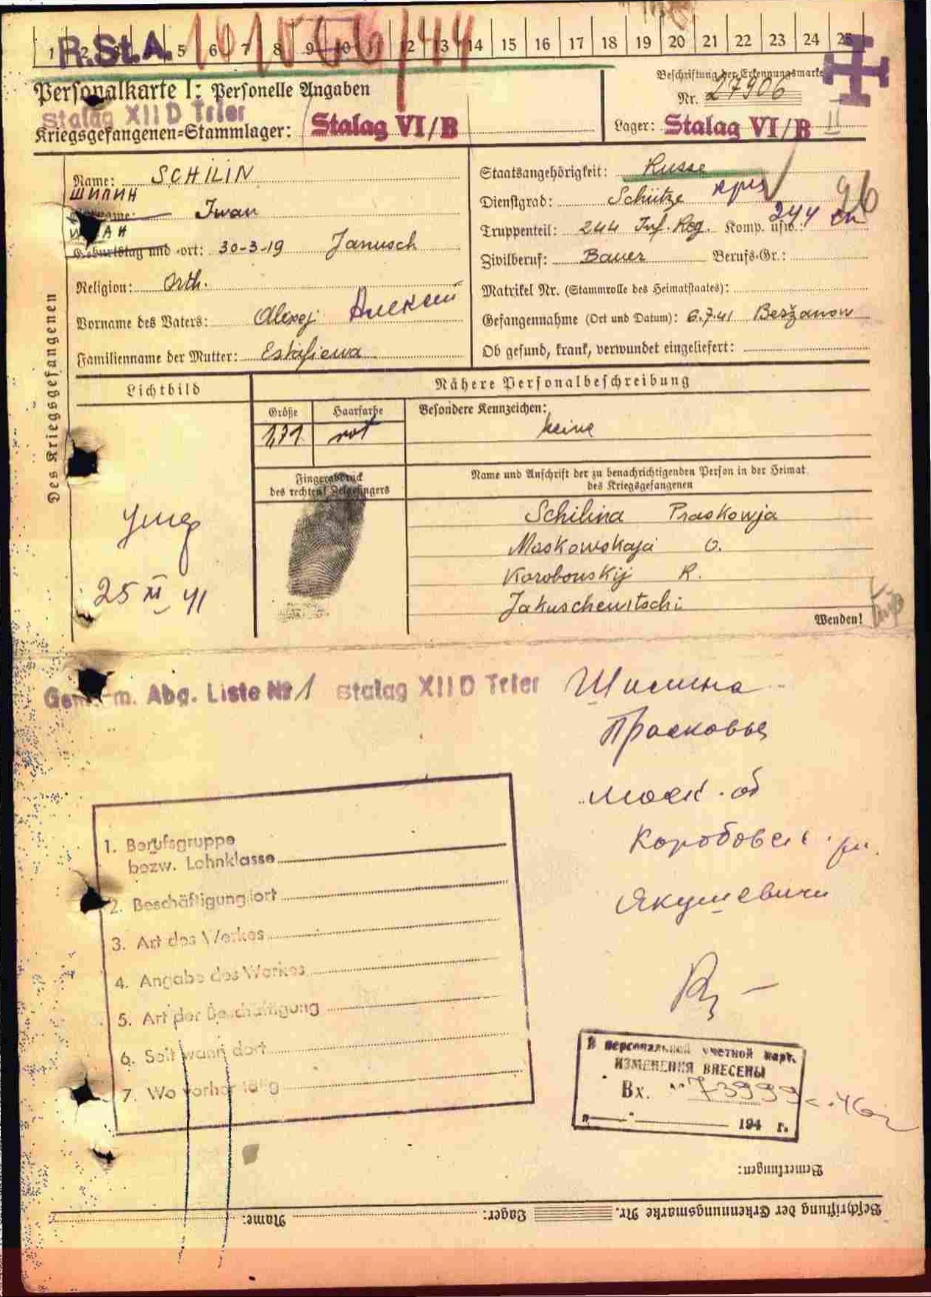 1 2 3 4 5 6 7 8 9 10 11 12 13 14 15 16 17 18 19 20 21 22 23 24 25
R.St.A.
Personalkarte I: Personelle Angaben
Beschriftung der Erkennungsmarke
Stalag XII D Trier
Nr. 27906
Kriegsgefangenen-Stammlager: Stalag VI/B
Lager: Stalag VI/B
Des Kriegsgefangenen
Name: SCHILIN
ШИЛИН
Vorname: Iwan
ИВАН
Geburtstag und -ort: 30-3-19 Janusch
Religion: Orth.
Vorname des Vaters: Alexej Алексей
Familienname der Mutter:
Staatsangehörigkeit: Russe
Dienstgrad: Schütze
Truppenteil: 244 Inf. Reg. Komp. usw.: 244
Zivilberuf: Bauer Berufs-Gr.:
Matrikel Nr. (Stammrolle des Heimatstaates):
Gefangennahme (Ort und Datum): 6.7.41
Ob gesund, krank, verwundet eingeliefert:
96
Lichtbild
Nähere Personalbeschreibung
Größe
Haarfarbe
Besondere Kennzeichen:
1,71
rot
keine
Fingerabdruck
des rechten Zeigefingers
Name und Anschrift der zu benachrichtigenden Person in der Heimat
des Kriegsgefangenen
Schilina Praskowja
Moskowskaja O.
Korobowskij R.
Jakuschewitschi
25 XI 41
Wenden!
Abg. Liste № 1 Stalag XII D Trier
Шилина
Прасковья
моск. об
Коробовск
Якушевичи
1. Berufsgruppe
bezw. Lohnklasse
2. Beschäftigungsort
3. Art des Werkes
4. Angabe des Werkes
5. Art der Beschäftigung
6. Seit wann dort
7. Wo vorher tätig
В персональной учетной карт.
ИЗМЕНЕНИЯ ВНЕСЕНЫ
Вх. 73999
194 г.
Bemerkungen:
Beschriftung der Erkennungsmarke Nr. Lager: Name: